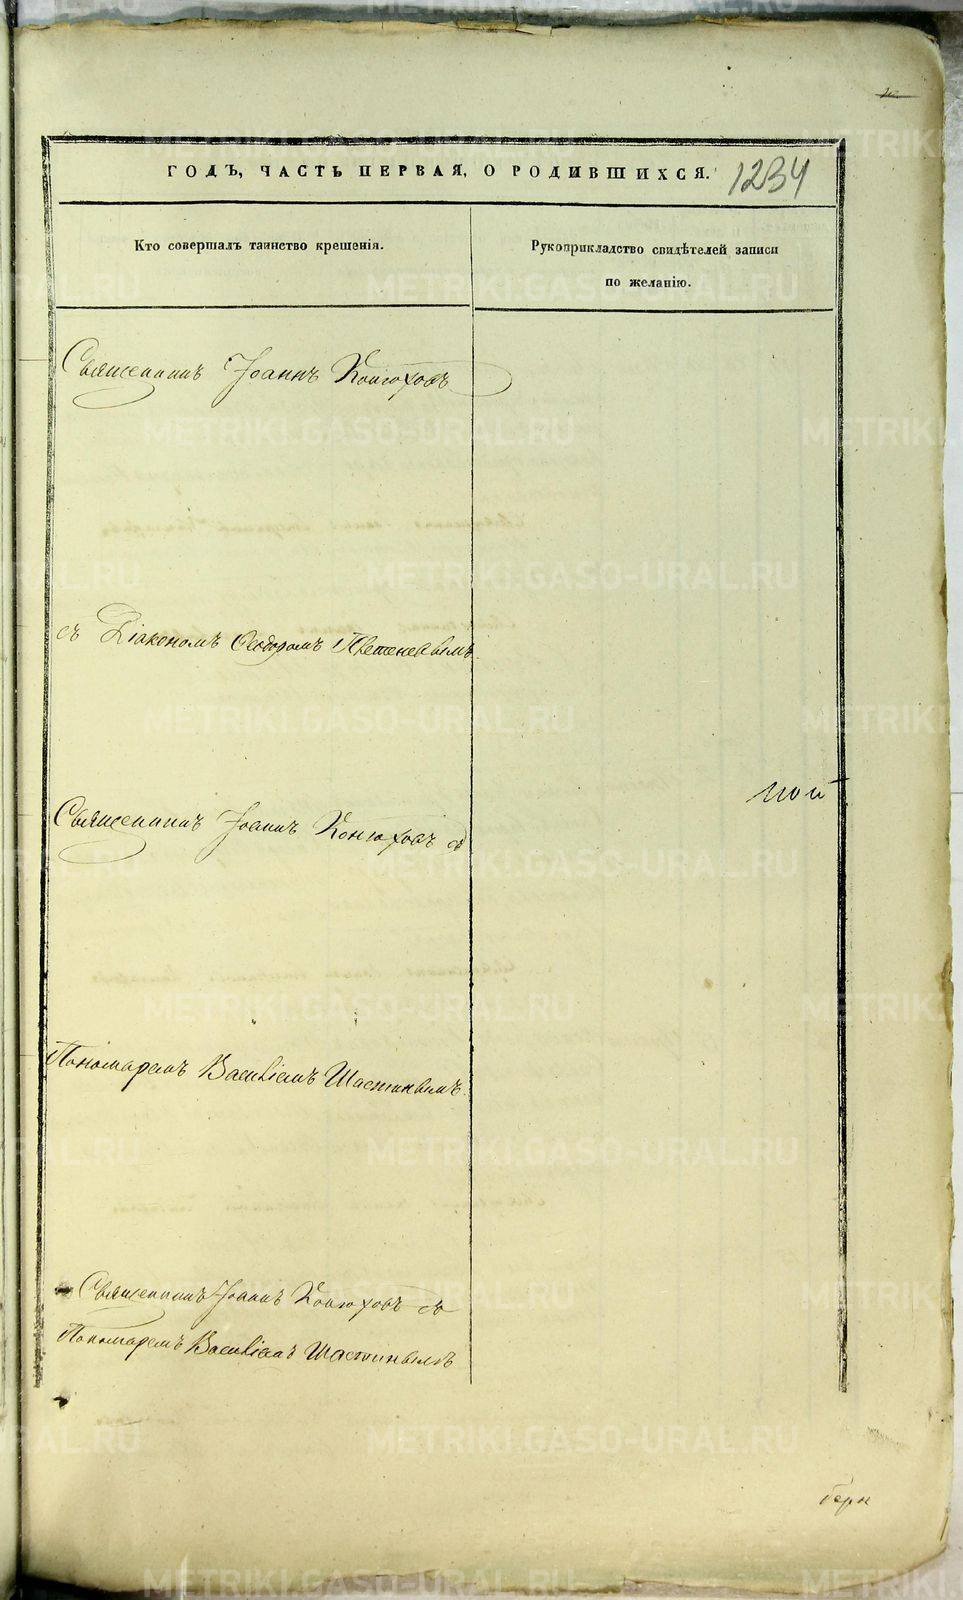 ГОДЪ, ЧАСТЬ ПЕРВАЯ, О РОДИВШИХСЯ. 1234
Кто совершалъ таинство крещенія.
Рукоприкладство свидѣтелей записи
по желанію.
Священникъ Іоаннъ Конюховъ
съ Діакономъ Ѳеодоромъ
Священникъ Іоаннъ Конюховъ съ
Пономаремъ Василіемъ Шастинымъ.
Священникъ Іоаннъ Конюховъ съ
Пономаремъ Василіемъ Шастинымъ
METRIKI.GASO-URAL.RU